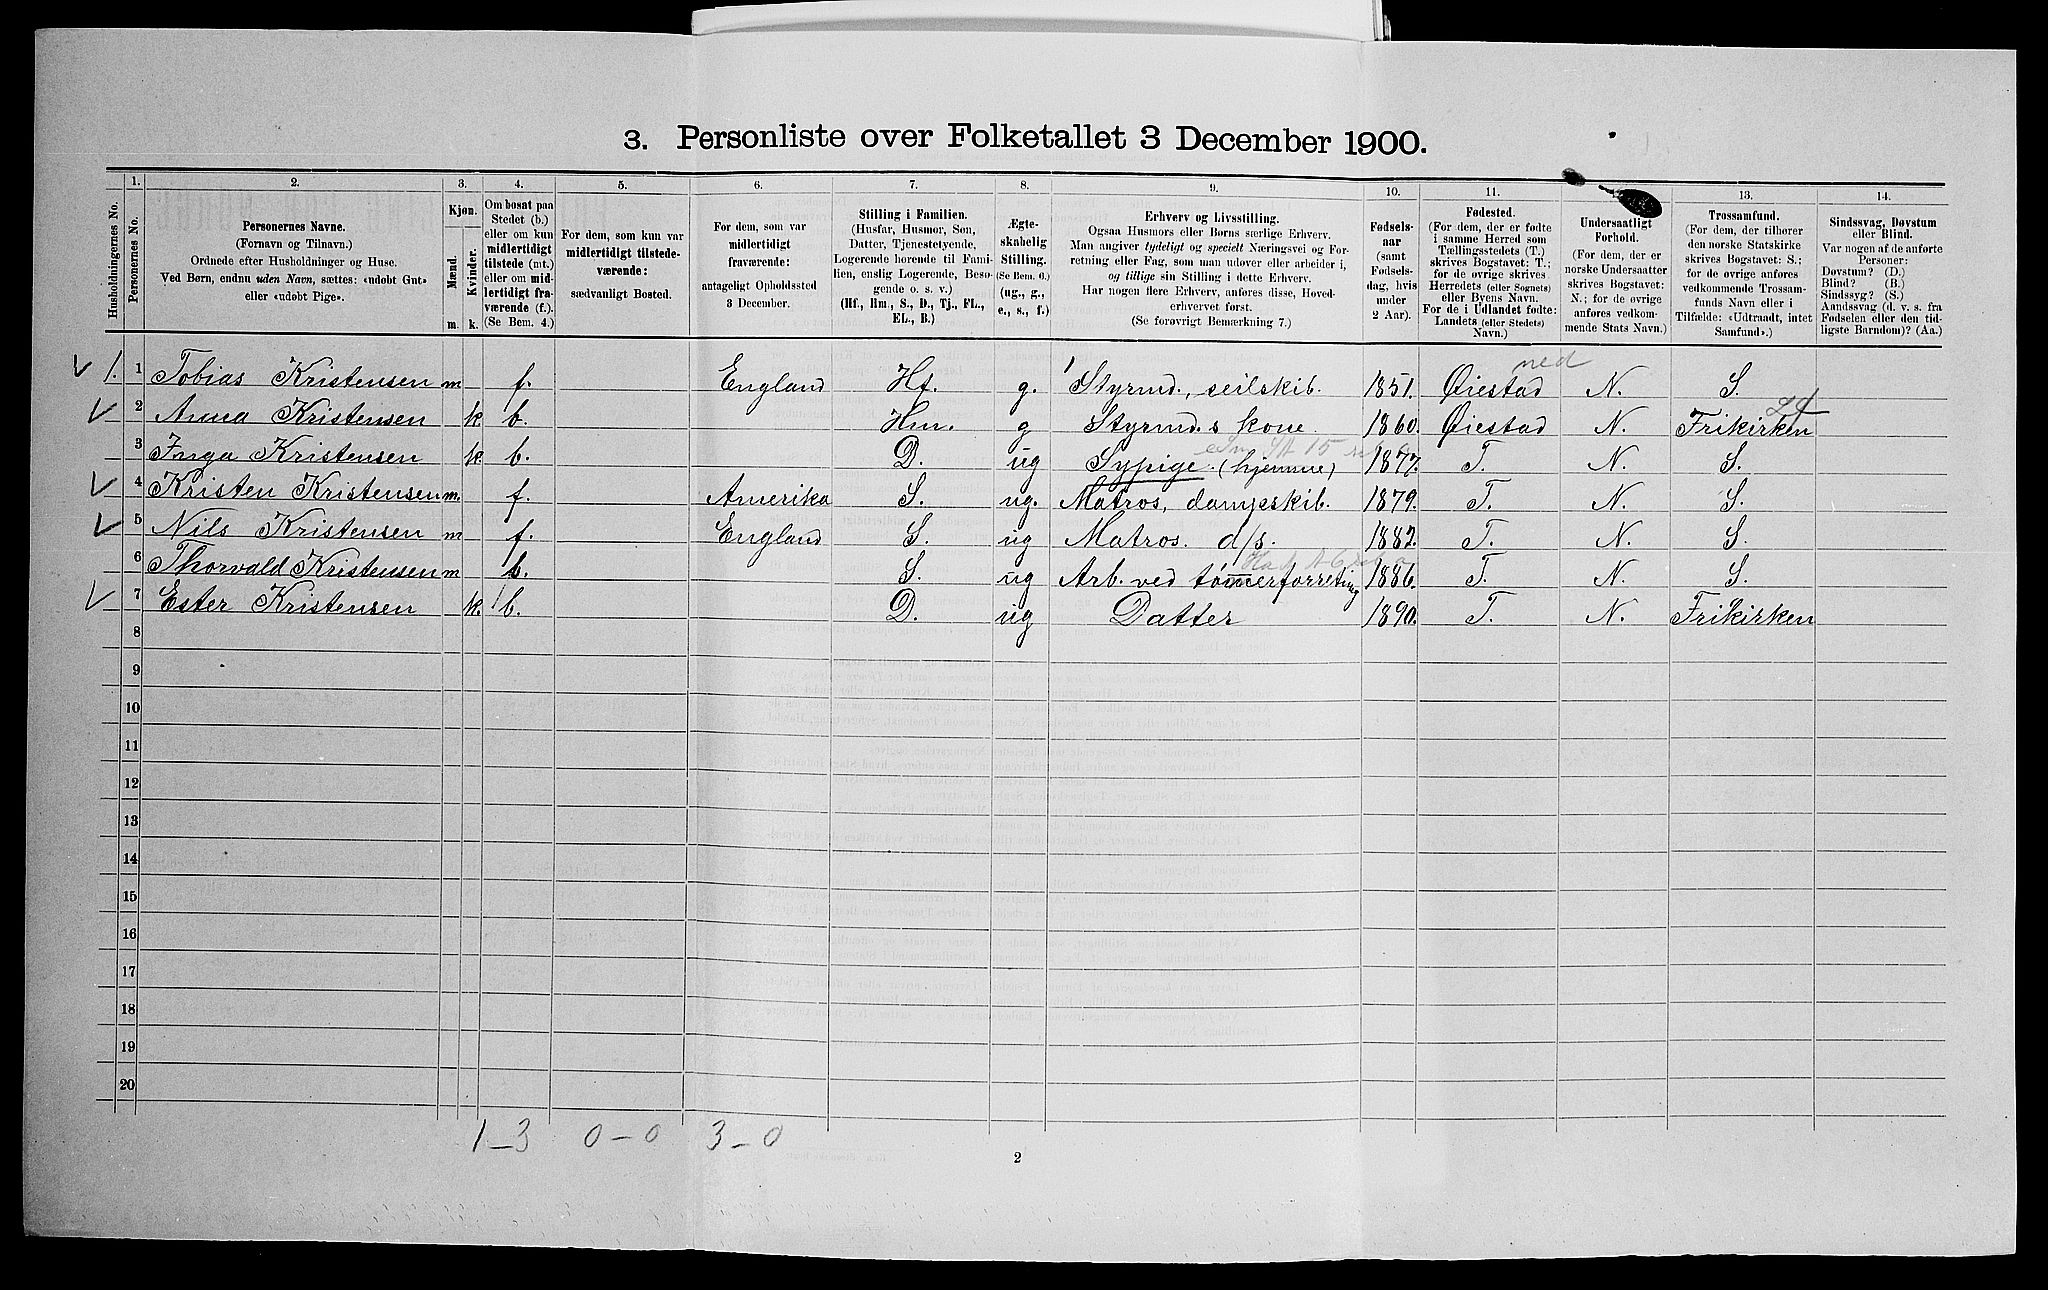 3. Personliste over Folketallet 3 December 1900.
Husholdningernes No.
1.
Personernes No.
2.
Personernes Navne.
(Fornavn og Tilnavn.)
Ordnede efter Husholdninger og Huse.
Ved Børn, endnu uden Navn, sættes: «udøbt Gut»
eller «udøbt Pige».
3.
Kjøn.
Mænd.
Kvinder.
m.
k.
4.
Om bosat paa
Stedet (b.)
eller om kun
midlertidigt
tilstede (mt.)
eller om mid-
lertidigt fra-
værende (f.).
(Se Bem. 4.)
5.
For dem, som kun var
midlertidigt tilstede-
værende:
sædvanligt Bosted.
6.
For dem, som var
midlertidigt
fraværende:
antageligt Opholdssted
3 December.
7.
Stilling i Familien.
(Husfar, Husmor, Søn,
Datter, Tjenestetyende,
Logerende hørende til Fami-
lien, enslig Logerende, Besø-
gende o. s. v.)
(Hf., Hm., S., D., Tj., FL.,
EL., B.)
8.
Ægte-
skabelig
Stilling.
(Se Bem. 6.)
(ug., g.,
e., s., f.)
9.
Erhverv og Livsstilling.
Ogsaa Husmors eller Børns særlige Erhverv.
Man angiver tydeligt og specielt Næringsvei og For-
retning eller Fag, som man udøver eller arbeider i,
og tillige sin Stilling i dette Erhverv.
Har nogen flere Erhverv, anføres disse, Hoved-
erhvervet først.
(Se forøvrigt Bemærkning 7.)
10.
Fødsels-
aar
(samt
Fødsels-
dag, hvis
under
2 Aar).
11.
Fødested.
(For dem, der er fødte
i samme Herred som
Tællingsstedets (T.)
skrives Bogstavet: T.;
for de øvrige skrives
Herredets (eller Sognets)
eller Byens Navn.
For de i Udlandet fødte:
Landets (eller Stedets)
Navn.)
Undersaatligt
Forhold.
(For dem, der er
norske Undersaatter
skrives Bogstavet:
N.; for de øvrige
anføres vedkom-
mende Stats Navn.)
13.
Trossamfund.
(For dem, der tilhører
den norske Statskirke
skrives Bogstavet: S.;
for de øvrige anføres
vedkommende Trossam-
funds Navn eller i
Tilfælde: «Udtraadt, intet
Samfund».)
14.
Sindssvag, Døvstum
eller Blind.
Var nogen af de anførte
Personer:
Døvstum? (D.)
Blind? (B.)
Sindssyg? (S.)
Aandssvag (d. v. s. fra
Fødselen eller den tid-
ligste Barndom)? (Aa.)
ned
1. 1 Tobias Kristensen m f. England Hf. g. Styrmd., seilskib. 1851. Øiestad N. S.
2 Anna Kristensen k. b. Hm. g Styrmd.s kone 1860. Øiestad N. Frikirken
3 Inga Kristensen k. b. D. ug Sypige. (hjemme) 1877. T. N. S.
4 Kristen Kristensen m. f. Amerika S. ug. Matros, dampskib. 1879. T. N. S.
5 Nils Kristensen m f. England S. ug Matros. d/s. 1882. T. N. S.
6 Thorvald Kristensen m b. S. ug Arb. ved tømmerforreting 1886. T. N. S.
7 Ester Kristensen k. b. D. ug Datter 1890. T. N. Frikirken
8
9
10
11
12
13
14
15
16
17
18
19
20
1-3 0-0 3-0
2